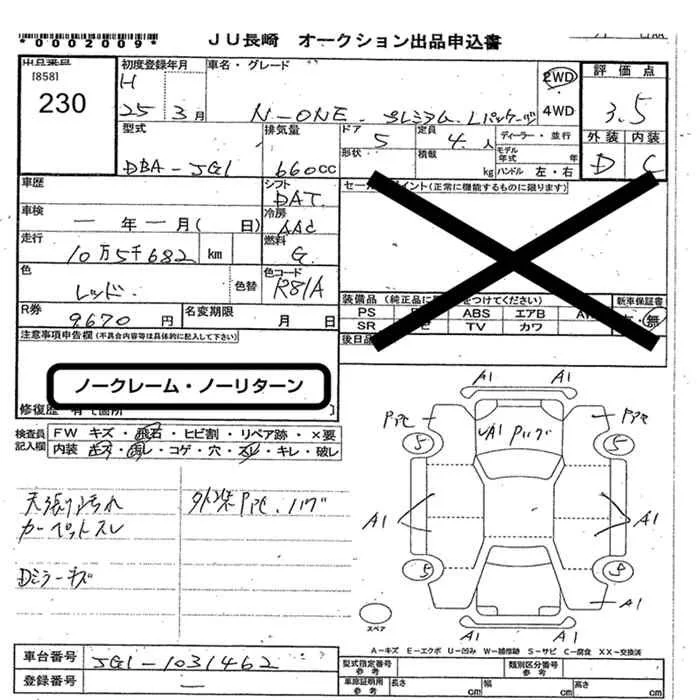 *0002009*
JU長崎 オークション出品申込書
出品番号
[858]
230
初度登録年月
H
25 3月
車名・グレード
N-ONE プレミアム Lパッケージ
2WD
4WD
評価点
3.5
外装 内装
D C
型式
DBA-JG1
排気量
660cc
ドア 5
形状
定員 4人
積載 kg
ディーラー・並行
モデル年式 年
ハンドル 左・右
車歴
シフト
DAT
車検
一年一月( 日)
冷房
AAC
走行
10万5千682 km
燃料
G
色
レッド
色替
色コード
R81A
R券
9670円
名変期限
月 日
セー ポイント(正常に機能するものに限ります)
装備品(純正品に をつけてください)
新車保証書
PS ABS エアB
SR TV カワ
・無
後日品
注意事項申告欄(不具合内容等は具体的に記入して下さい)
ノークレーム・ノーリターン
修復歴 有[箇所 ]
検査員
記入欄
FW キズ・飛石・ヒビ割・リペア跡・×要
内装 キズ・汚レ・コゲ・穴・スレ・キレ・破レ
天張り汚れ
カーペットスレ
Dミラーキズ
外装Pヤセ.ハゲ
A1 A1
Pヤセ Pヤセ
A1 Pハゲ
5 5
A1 A1
5
A1
A1 A1
スペア
A-キズ E-エクボ U-凹み W-補修跡 S-サビ C-腐食 XX-交換済
車台番号
JG1-1031462
登録番号
一
型式指定番号
参考
類別区分番号
参考
車庫証明用
参考
長さ cm
幅 cm
高さ cm